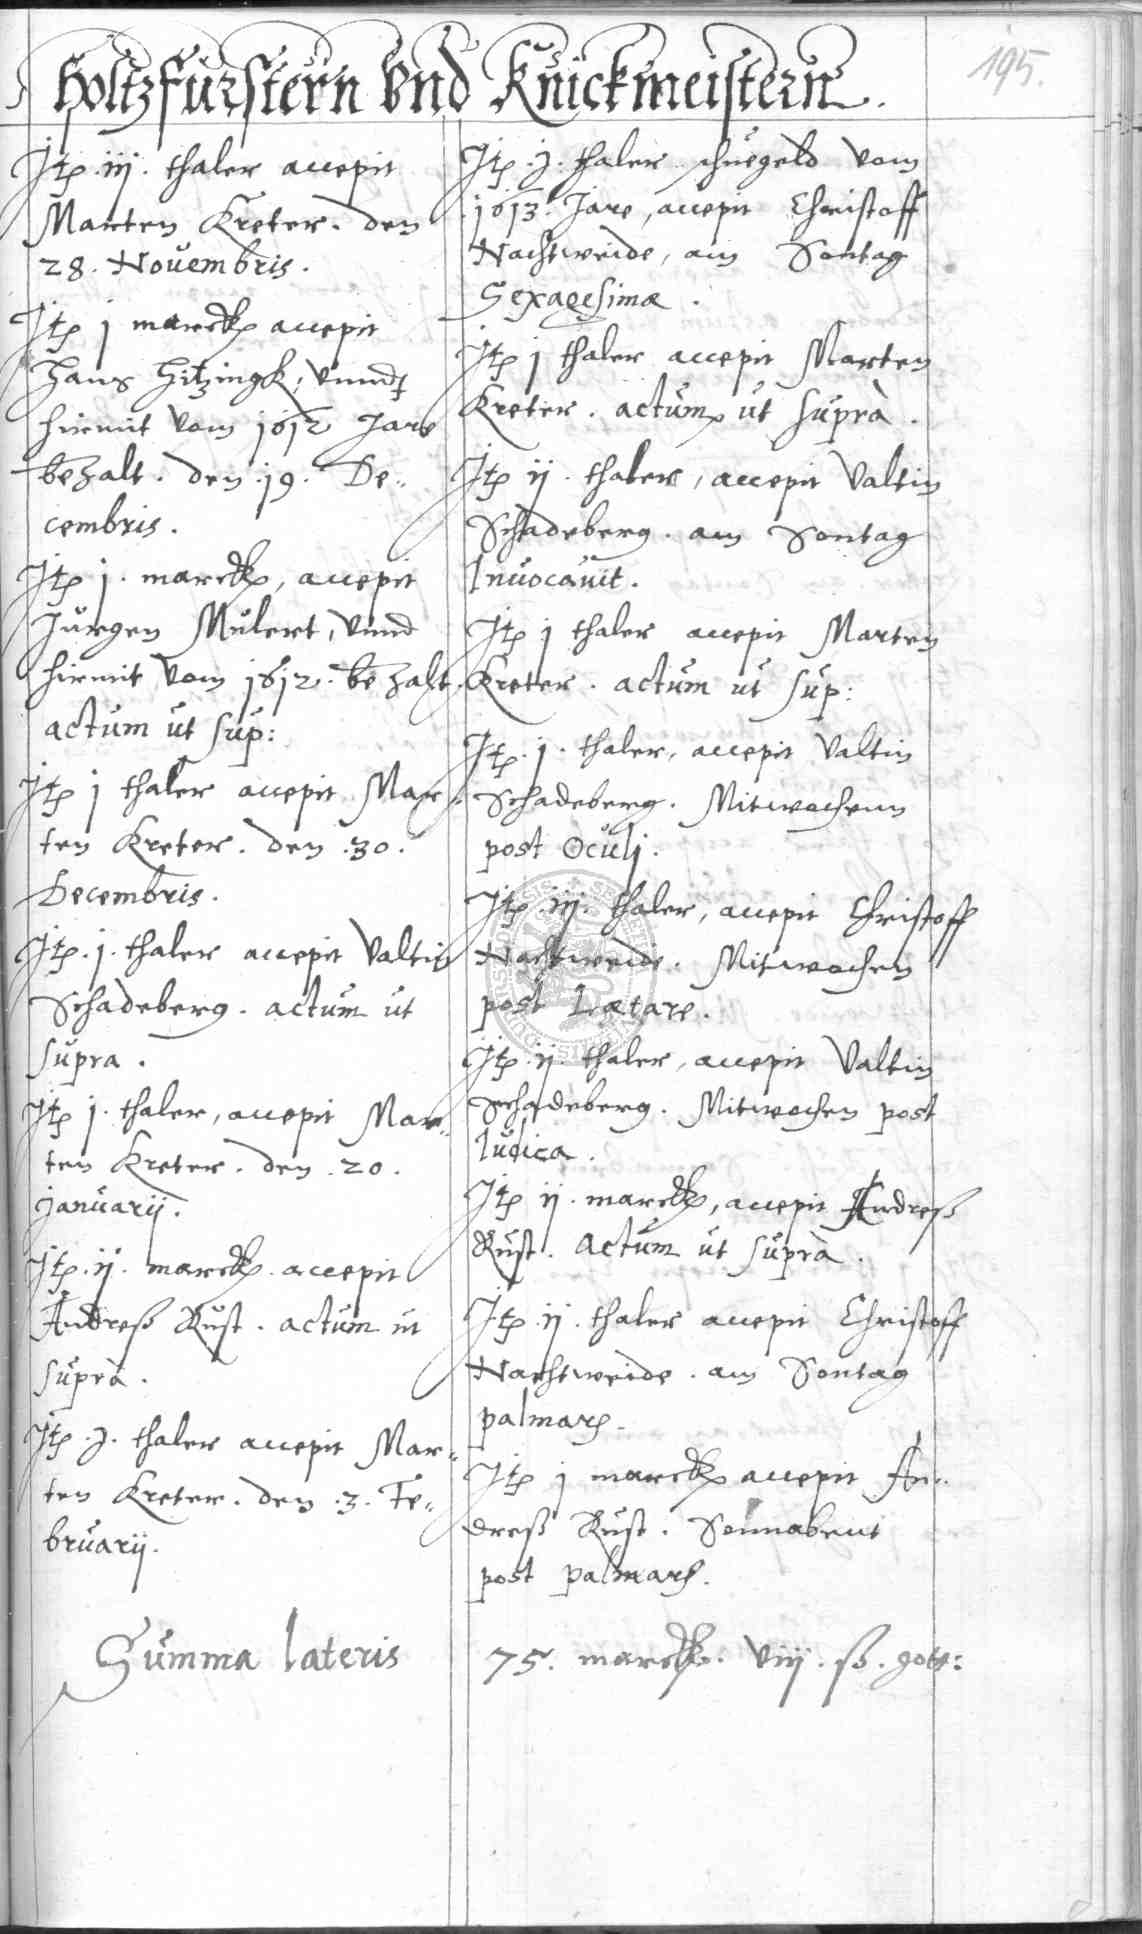 195.
Holtzfürstern vnd Knickmeistern.
Itp .iij. thaler accepit
Marten Kreter. den
28. Nouembris.
Itp j marck accepit
Hans Hitzingk, vnnd
hirmit vom 1612 Jare
bezalt. den .19. De„
cembris.
Itp j. marck, accepit
Jürgen Mulert, vnnd
hirmit vom 1612. bezalt.
actum ut sup:
Itp j thaler accepit Mar„
ten Kreter. den .30.
Decembris.
Itp .j. thaler accepit Valtin
Schadeberg. actum ut
supra.
Itp j. thaler, accepit Mar„
ten Kreter. den .20.
januarij.
Itp .ij. marck accepit
Andreß Rust. actum ut
suprà.
Itp .j. thaler accepit Mar„
ten Kreter. den .3. Fe„
bruarij.
Itp .j. thaler schuegeld vom
1613. Jare, accepit Christoff
Nachtweide, am Sontag
Sexagesimæ.
Itp j thaler accepit Marten
Kreter. actum ut suprà.
Itp ij. thaler, accepit Valtin
Schadeberg. am Sontag
Inuocauit.
Itp j thaler accepit Marten
Kreter. actum ut sup:
Itp .j. thaler, accepit Valtin
Schadeberg. Mitwochenn
post Oculj.
Itp .iij. thaler, accepit Christoff
Nachtweide. Mitwochen
post Lætare.
Itp .ij. thaler, accepit Valtin
Schadeberg. Mitwochen post
Iudica.
Itp ij. marck, accepit Andreß
Rust. actum ut suprà.
Itp .ij. thaler accepit Christoff
Nachtweide. am Sontag
palmar.
Itp j marck accepit An„
dreß Rust. Sonnabent
post palmar.
Summa lateris 75. marck. viij. ß. gott: